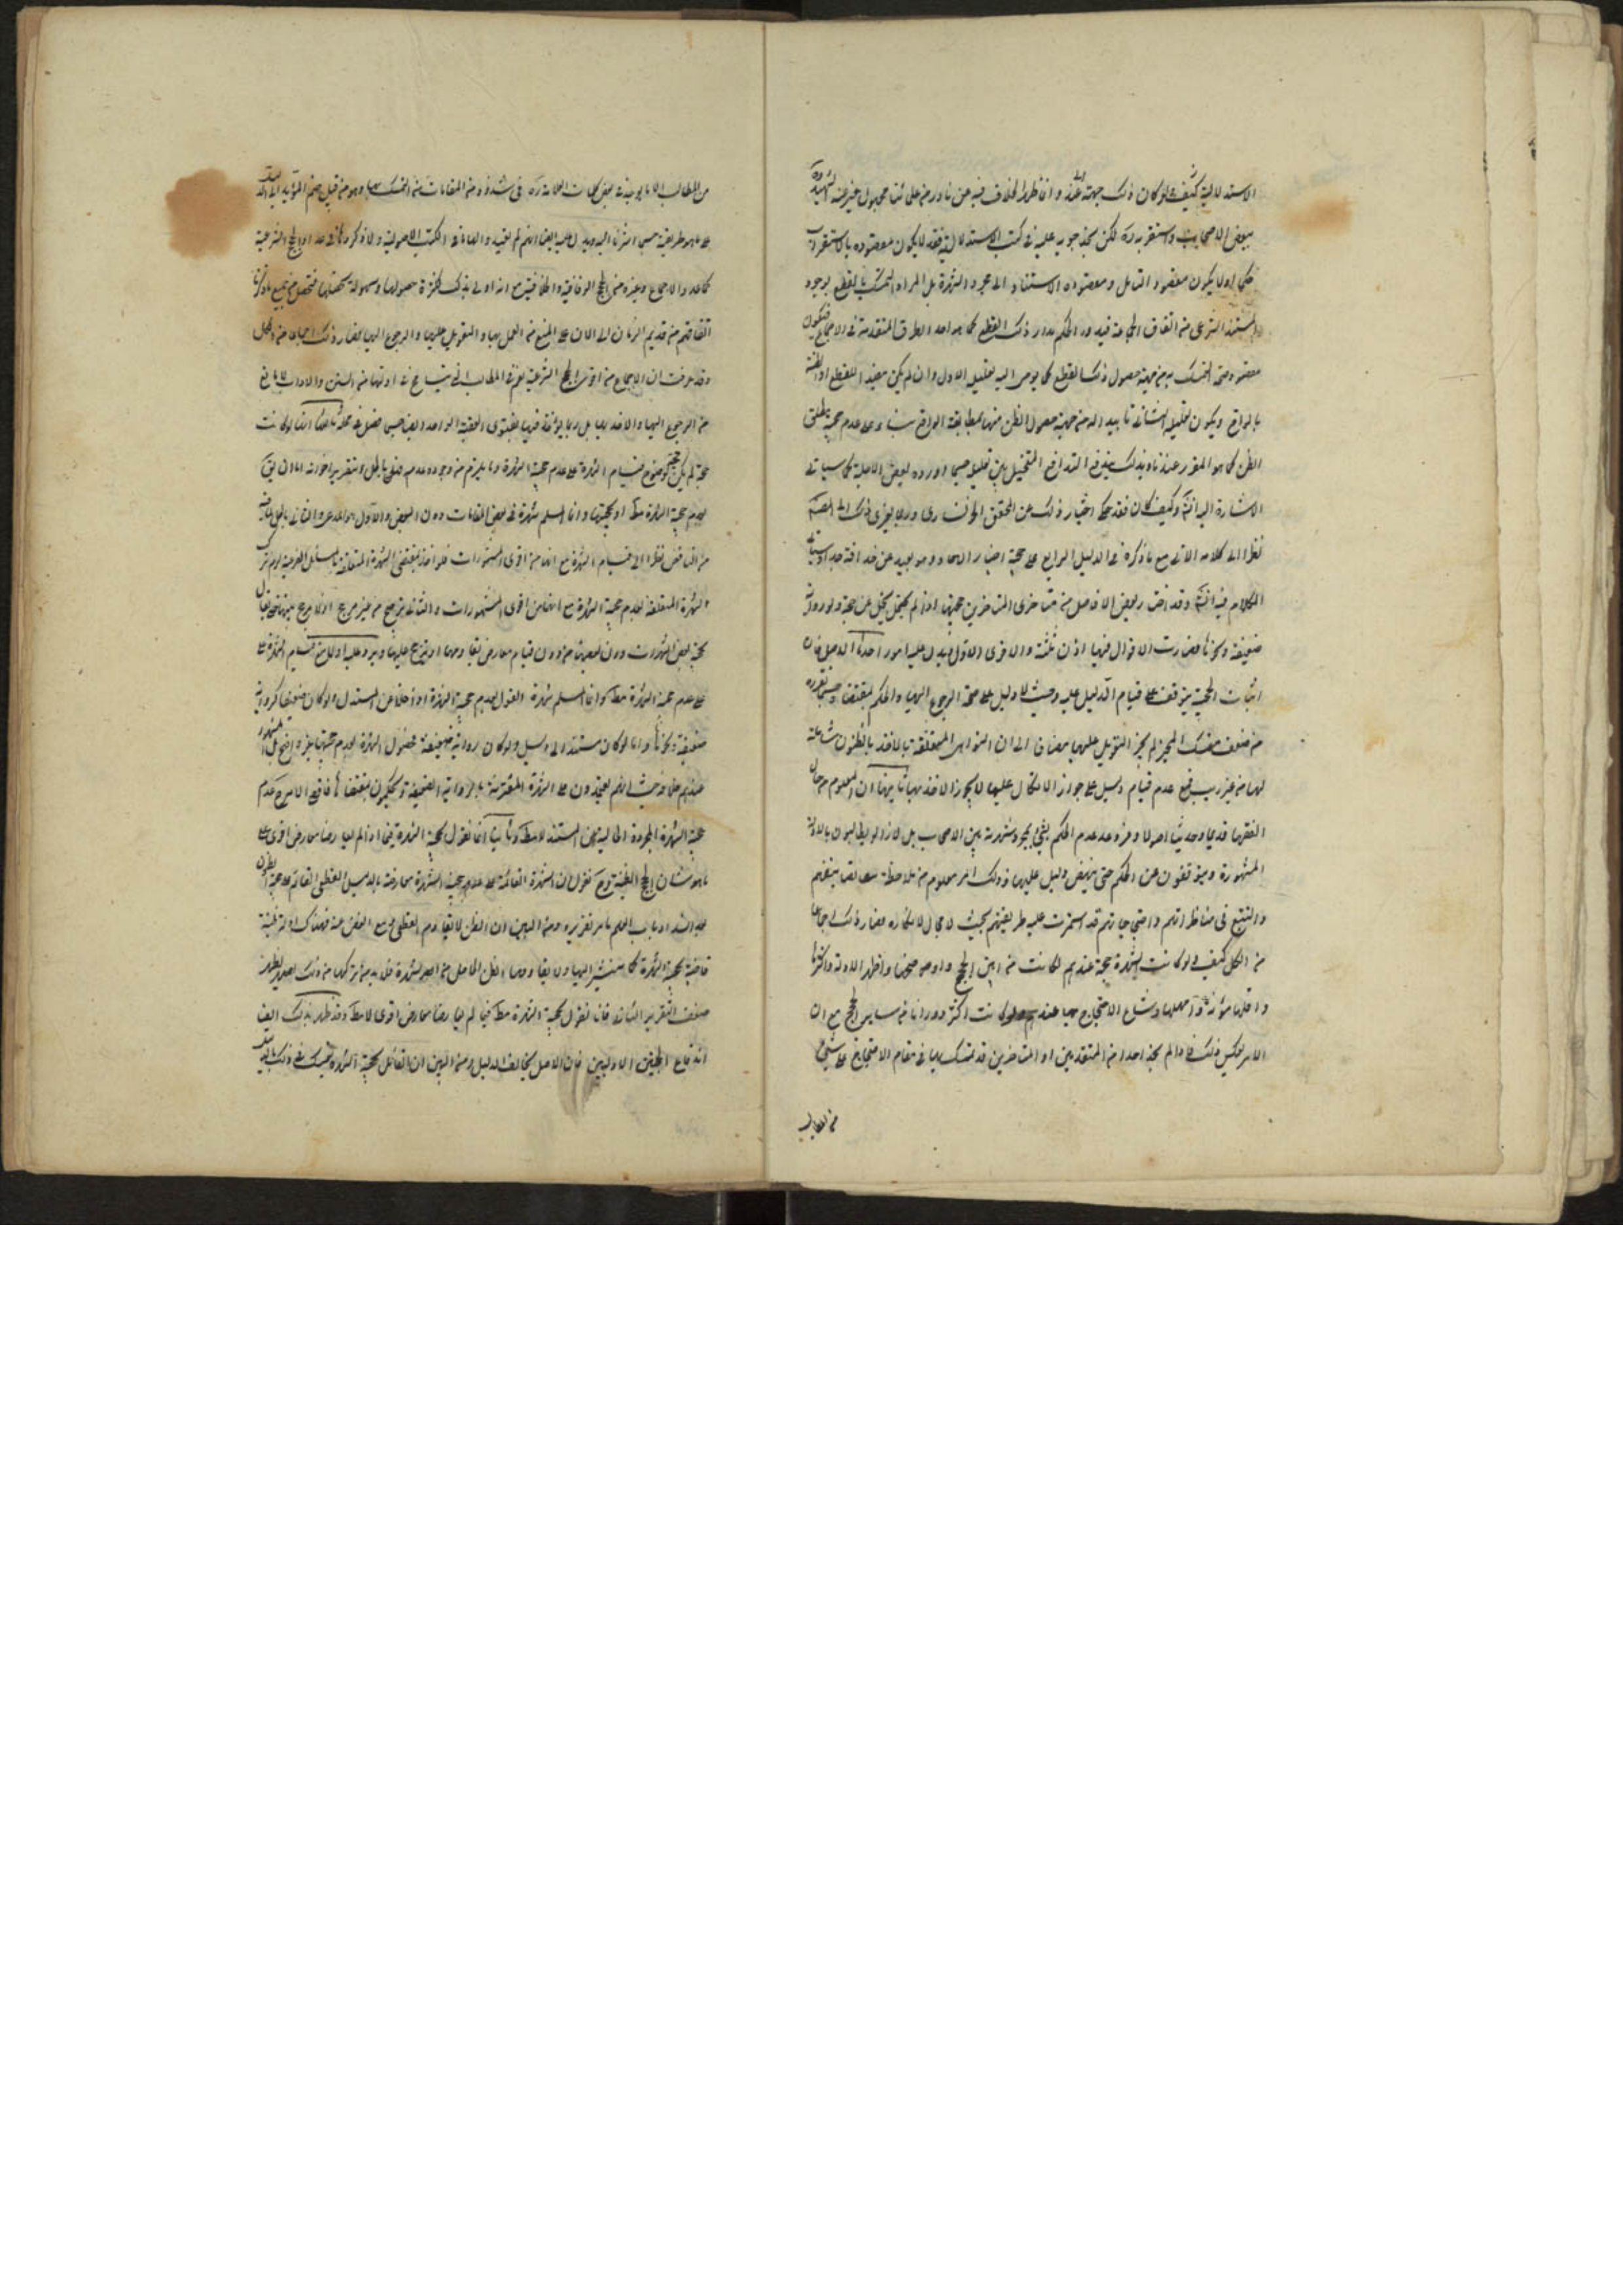 الاستدلالية كيف ولو كان ذلك جهة عنده وانما ظهر الخلاف فيه عن نادر منهم على
ببعض الاصحاب واستقر به ره لكن حجة عليه في كتب الاستدلالية فقد لا يكون مقصوده بالاستقراب
حكما اولا يكون مقصود القائل ومقصوده الاستناد الى مجرد الشهرة بل المراد التمسك بالقطع بوجود
المستند الشرعي من اتفاق الجماعة فيدور الحكم مدار ذلك القطع كما هو احد الطرق المتقدمة في الاجماع فيكون
مقصوده صحة التمسك به من جهة حصول ذلك القطع كما يومى اليه تعليله الاول وان لم يكن مفيدا للقطع او الظن
بالواقع ويكون تعليله الثاني تاييدا له من جهة حصول الظن منها بمطابقة الواقع بناء على عدم حجية مطلق
الظن كما هو المقرر عندنا وبذلك يندفع التدافع المتخيل بين تعليليه حسبما اورده بعض الاجلة كما سياتي
الاشارة اليه انش وكيف كان فقد حكى اختيار ذلك عن المحقق الخوانساري وربما يعزى ذلك الى المصنف
نظرا الى كلامه الاتي مع ما ذكره في الدليل الرابع على حجية اخبار الاحاد وهو بعيد عن مذاقه جدا وسياتي
الكلام فيه انش وقد اختار بعض الافاضل من متاخري المتاخرين حجيتها اذا لم يحتمل عن حجة ولو رواية
ضعيفة ونحوها فصارت الاقوال فيها اذن ثلثة والاقوى الاول ويدل عليه امور احدها الاصل فان
اثبات الحجية يتوقف على قيام الدليل عليه وحيث لا دليل على صحة الرجوع اليها والحكم بمقتضاها حسبما نقرره
من ضعف متمسك المجيز لم يجز التعويل عليها مضافا الى ان النواهي المتعلقة بالاخذ بالظنون شاملة
لها من غير ريب فمع عدم قيام دليل على جواز الاتكال عليها لا يجوز الاخذ بها ثانيها ان المعلوم من حال
الفقهاء قديما وحديثا اصولا وفروعا عدم الحكم بشيء بمجرد شهرته بين الاصحاب بل لا زالوا يطالبون بالادلة
المشهورة ويتوقفون عن الحكم حتى ينهض دليل عليها وذلك امر معلوم من ملاحظة مصنفاتهم
والتتبع في مناظراتهم واحتجاجاتهم قد استمرت عليه طريقتهم بحيث لا مجال لانكاره فصار ذلك اجماعا
من الكل كيف ولو كانت الشهرة حجة عندهم لكانت من ابين الحجج واوضحها واظهر الادلة واكثرها
واقلها مؤنة واسهلها وشاع الاحتجاج بها عندهم وكانت اكثر دورانا من ساير الحجج مع ان
الامر بعكس ذلك فانا لم نجد احدا من المتقدمين او المتاخرين قد تمسك بها في مقام الاحتجاج على شيء
من المطالب
من المطالب الا ما يوجد في بعض كلمات العلامة ره في شذوذ من المقامات من التمسك بها وهو من قبيل ضم المؤيد الى الدليل
على ما هو طريقته حسبما اشرنا اليه ويدل عليه ايضا انهم لم يعقدوا لها بابا في الكتب الاصولية ولا ذكروها في عداد الحجج الشرعية
كالاجماع وغيره من الحجج الوفاقية والخلافية مع انه اولى بذلك لكثرة حصولها وسهولة تحصيلها فتحصل من جميع ما ذكرنا
اتفاقهم من قديم الزمان الى الان على المنع من العمل بها والتعويل عليها والرجوع اليها فصار ذلك اجماعا من الكل
وقد عرفت ان الاجماع من اقوى الحجج الشرعية يعزى المطالب التي شاع في ادلتها من السنن والاداب لا مانع
من الرجوع اليها والاخذ بها بل ربما يؤخذ فيها بفتوى الفقيه الواحد ايضا حسبما فصل في محله ثالثها انها لو كانت
حجة لم يكن حجة لوضوح قيام الشهرة على عدم حجية الشهرة وما يلزم من وجوده عدمه فهو باطل وبتقرير اخر انه اما ان يقال
بعدم حجية الشهرة مطلقا او بحجيتها وانما المسلم شهرة في بعض المقامات دون البعض والاول هو المدعى والثاني باطل
من التناقض نظرا الى قيام الشهرة مع انها من اقوى الشهورات فلو اخذ بمقتضى الشهرة المتعلقة بالمسائل الفرعية لزم ترك
الشهرة المتعلقة بعدم حجية الشهرة مع انها من اقوى المشهورات والثاني ترجيح من غير مرجح اذ لا مرجح بينها حتى يقال
بحجية بعض الشهرات دون بعضها من دون قيام معارض يقاومها او يترجح عليها ويرد عليه اولا منع قيام الشهرة على
على عدم حجية الشهرة مطلقا وانما المسلم شهرة القول بعدم حجية الشهرة اذا خلا عن المستند ولو كان ضعيفا كرواية
ضعيفة ونحوها واما لو كان مستندا الى دليل ولو كان رواية ضعيفة فحصول الشهرة بعدم حجيتها غير واضح بل المشهور
عندهم خلافه حيث انهم يعتمدون على الشهرة المقترنة بالرواية الضعيفة ويحكمون بمقتضاها فاقصى الامر ح عدم
حجية الشهرة المجردة الخالية عن المستند لا مطلقا وثانيا انا نقول بحجية الشهرة فيما اذا لم يعارضها معارض اقوى على
ما هو شان الحجج الظنية وح نقول ان الشهرة القائمة على عدم حجية الشهرة معارضة بالدليل القطعي القائم على حجية الظن
بعد انسداد باب العلم كما مر تقريره ومن البين ان الظن لا يقاوم القطعي مع الغض عنه فهناك ادلة ظنية
قاضية بحجية الشهرة كما سنشير اليها ولا يقاومها الظن الحاصل من الشهرة فلا بد من تركها من ذلك يظهر
ضعف التقرير الثاني فانا نقول بحجية الشهرة مطلقا فيما لم يعارضها معارض اقوى لا مطلقا وقد ظهر بذلك ايضا
اندفاع الحجتين الاوليين فان الاصل يخالف الدليل ومن البين ان القائل بحجية الشهرة يتمسك في ذلك